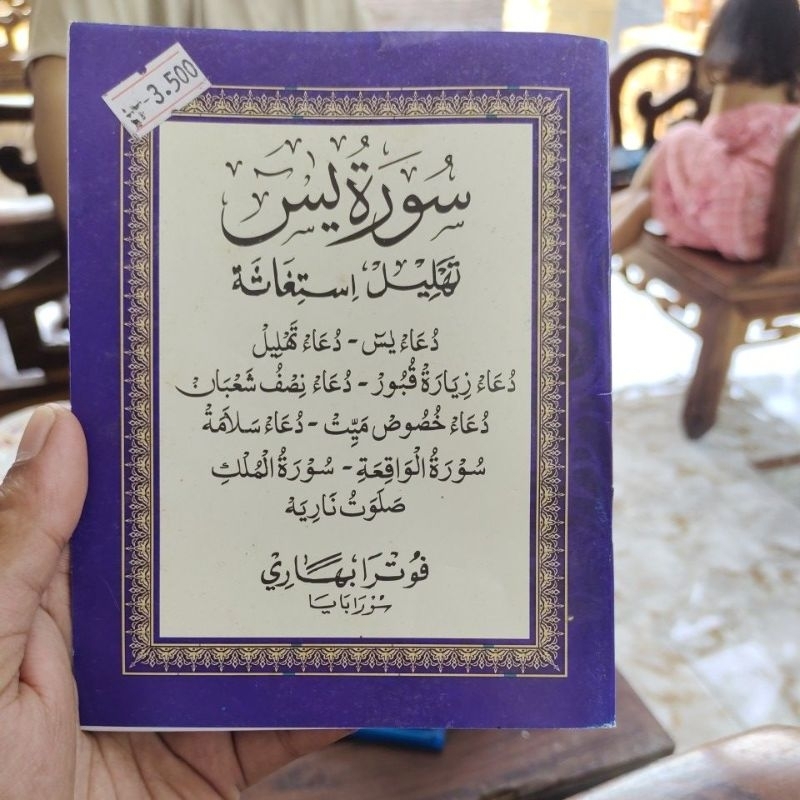 Rp 3.500
سُورَةُ يٰسٓ
تَهْلِيْل، اِسْتِغَاثَة
دُعَاءْ يٰسٓ - دُعَاءْ تَهْلِيْل
دُعَاءْ زِيَارَةْ قُبُورْ - دُعَاءْ نِصْفُ شَعْبَانْ
دُعَاءْ خُصُوصْ مَيِّتْ - دُعَاءْ سَلَامَةْ
سُوْرَةُ الْوَاقِعَةِ - سُوْرَةُ الْمُلْكِ
صَلَوَتُ نَارِيَه
فُوْتْرَا بَهَارِي
سُوْرَابَايَا